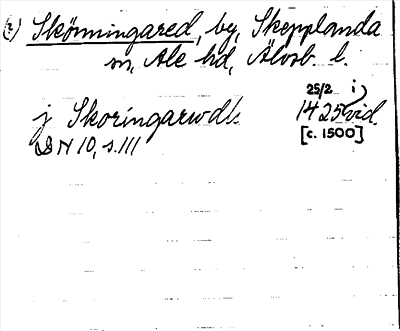 2) Skönningared, by, Skepplanda
sn, Ale hd, Älvsb. l.
25/2 i
j Skoringarwdh 1425 vid.
[c. 1500]
DN 10, s. 111